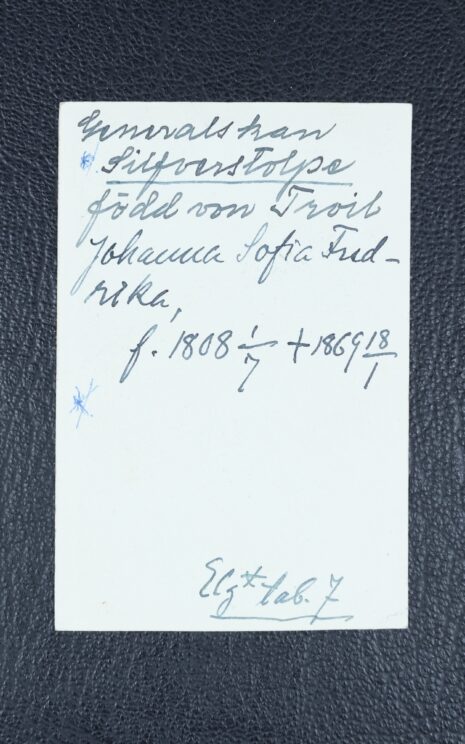 Generalskan
Silfverstolpe
född von Troil
Johanna Sofia Fred-
rika,
f. 1808 1/7 + 1869 18/1
Elgx tab. 7